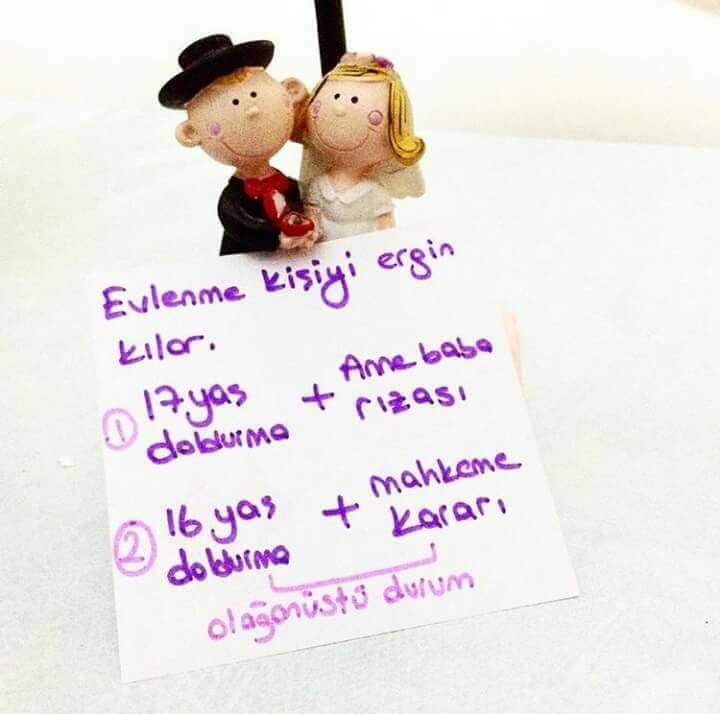 Evlenme kişiyi ergin
kılar.
1 17 yaş + Anne baba
doldurma rızası
2 16 yaş + mahkeme
doldurma kararı
olağanüstü durum